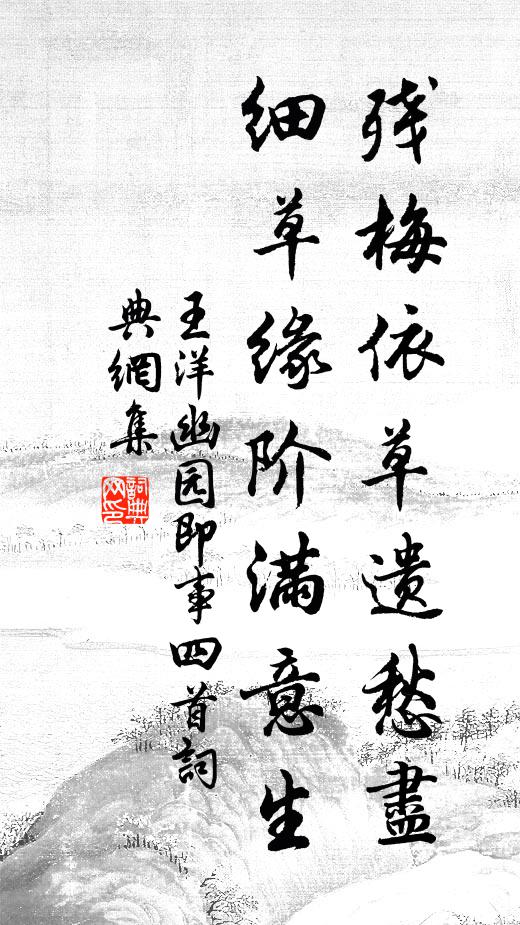 残梅依草遗愁盡
细草缘阶满意生
王洋幽园即事四首詞
典網集
詞典
网印